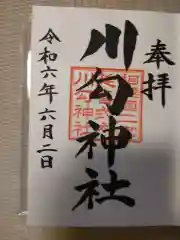 奉拝
川勾神社
川勾神社
令和六年六月二日